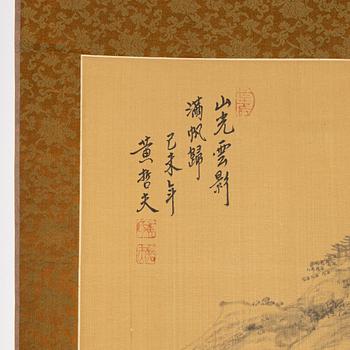 山光雲影
滿帆歸
己未年
黄哲夫